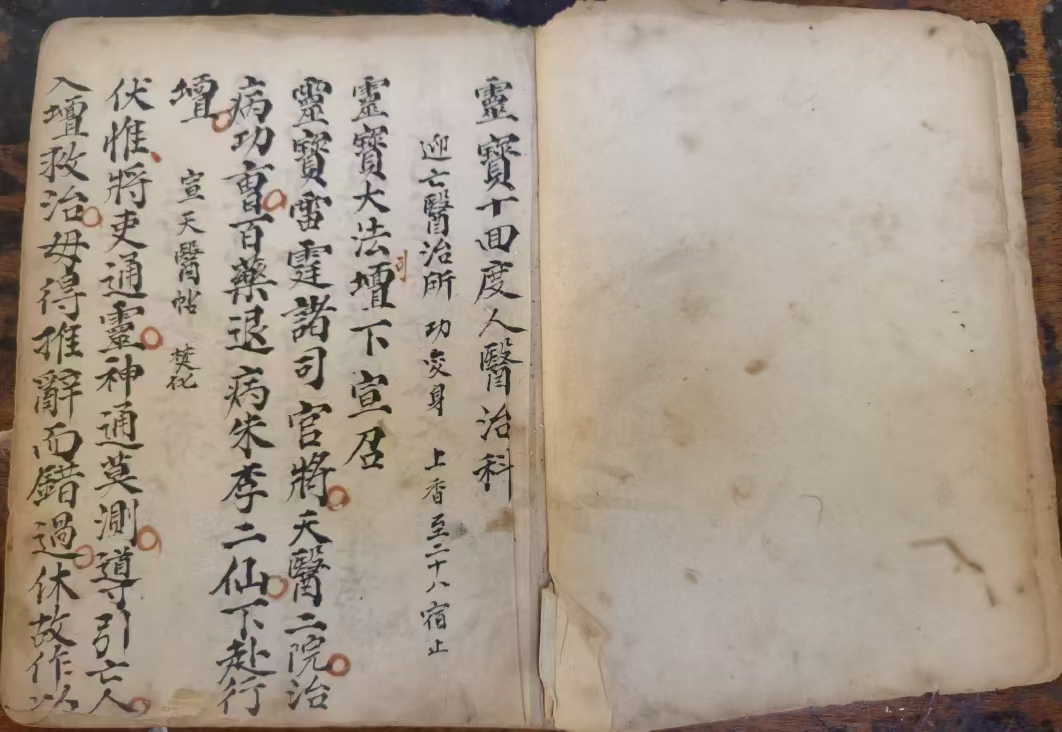 靈寶十回度人醫治科
迎亡醫治所 功变身 上香至二十八宿止
靈寶大法壇下宣召
靈寶雷霆諸司官將天醫二院治
病功曹百藥退病朱李二仙下赴行
壇 宣天醫帖 焚化
伏惟將吏通靈神通莫測導引亡人
入壇救治毋得推辭而錯過休故作以